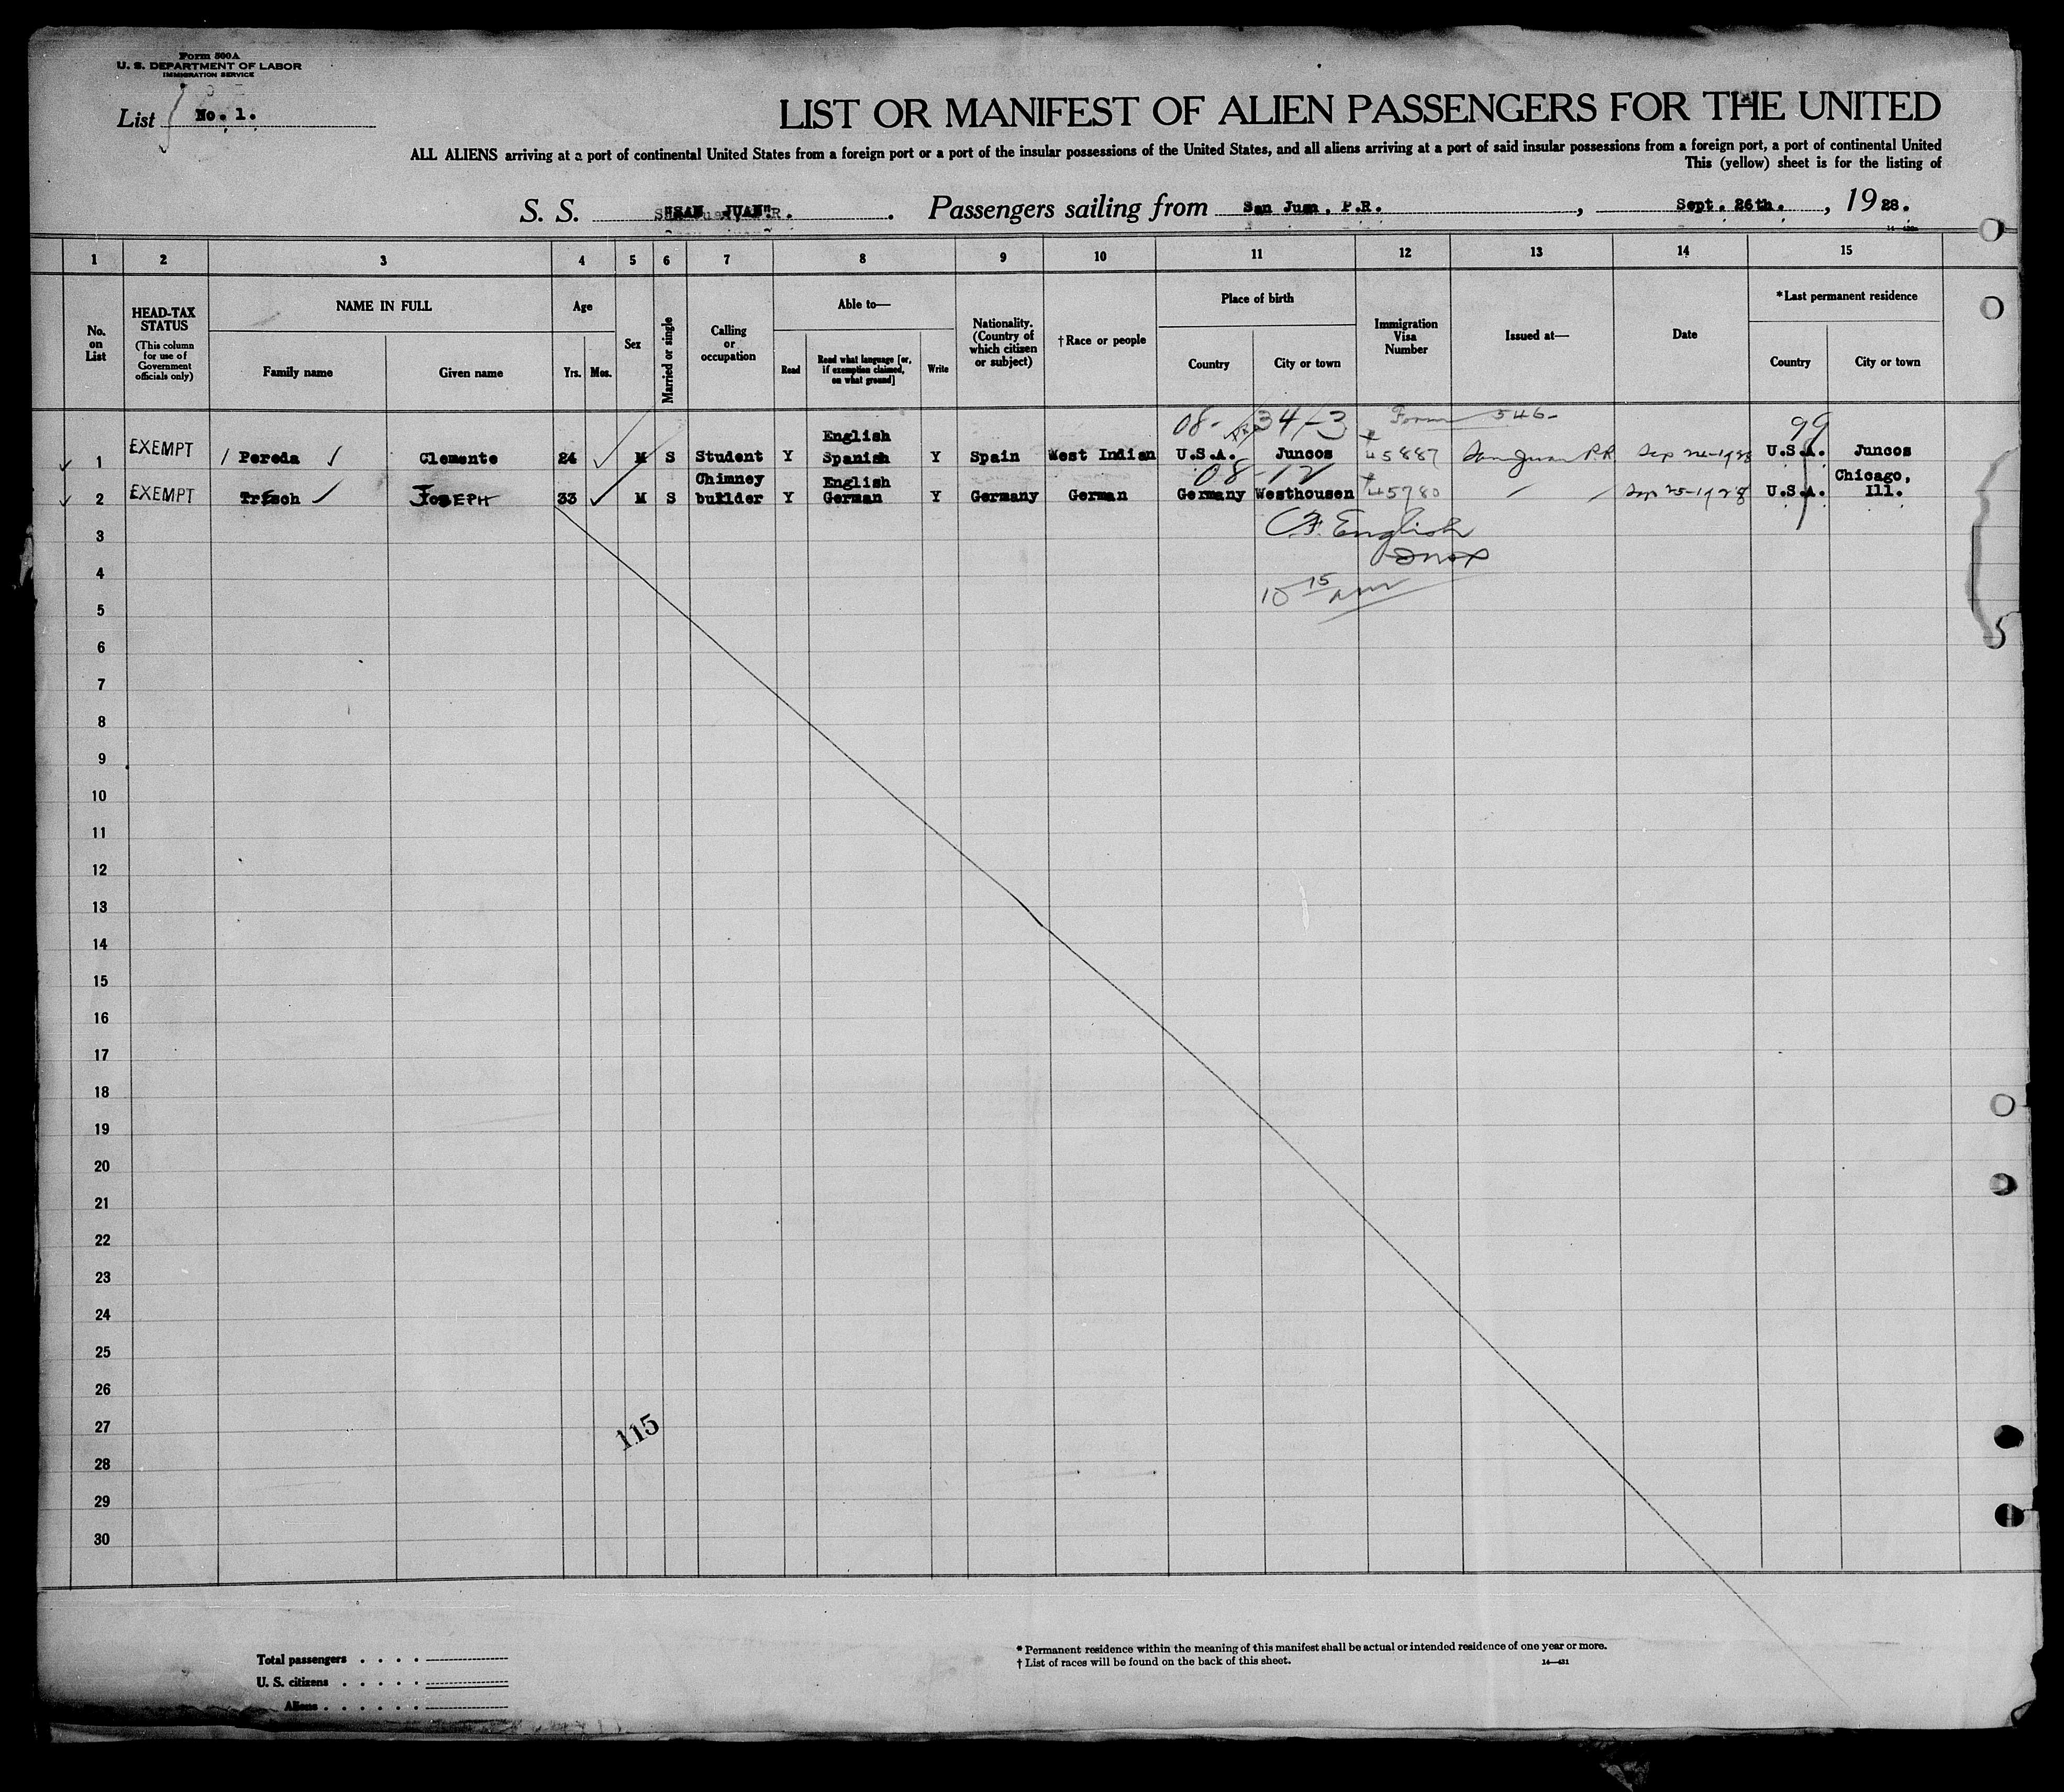 Form 500A
U. S. DEPARTMENT OF LABOR
IMMIGRATION SERVICE
List No. 1.
LIST OR MANIFEST OF ALIEN PASSENGERS FOR THE UNITED
ALL ALIENS arriving at a port of continental United States from a foreign port or a port of the insular possessions of the United States, and all aliens arriving at a port of said insular possessions from a foreign port, a port of continental United
This (yellow) sheet is for the listing of
S. S. SAN JUAN. Passengers sailing from San Juan, P.R., Sept. 26th., 1928.
1 2 3 4 5 6 7 8 9 10 11 12 13 14 15
No. on List
HEAD-TAX STATUS
(This column for use of Government officials only)
NAME IN FULL
Family name Given name
Age
Yrs. Mos.
Sex
Married or single
Calling or occupation
Able to—
Read
Read what language [or, if exemption claimed, on what ground]
Write
Nationality. (Country of which citizen or subject)
†Race or people
Place of birth
Country City or town
Immigration Visa Number
Issued at—
Date
*Last permanent residence
Country City or town
08- 34/-3 Form 546- 99
1 EXEMPT Pereda Clemente 24 M S Student Y English Spanish Y Spain West Indian U.S.A. Juncos 45887 San Juan P.R. Sep 24-1928 U.S.A. Juncos
08-12
2 EXEMPT Trisch JOSEPH 33 M S Chimney builder Y English German Y Germany German Germany Westhousen 45780 Sep 25-1928 U.S.A. Chicago, Ill.
3
C.F. English
4
10 15 am
5
5
6
7
8
9
10
11
12
13
14
15
16
17
18
19
20
21
22
23
24
25
26
27
115
28
29
30
Total passengers
U. S. citizens
Aliens
* Permanent residence within the meaning of this manifest shall be actual or intended residence of one year or more.
† List of races will be found on the back of this sheet. 14—431